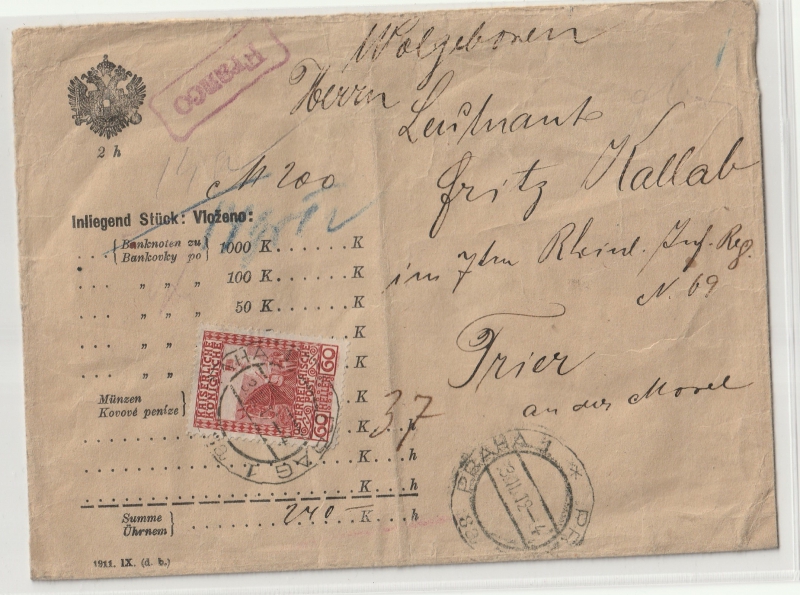 Franco
Wolgeboren
Herrn
Leutnant
Fritz Kallab
im 7ten Rheind. Inf. Reg.
N. 69
Trier
an der Mosel
2 h
M 200
Inliegend Stück: Vloženo:
... { Banknoten zu Bankovky po } 1000 K.......K
... „ „ „ 100 K.......K
... „ „ „ 50 K.......K
... „ „ „ K
... „ „ „ K
Münzen
Kovové peníze } K
37
K...h
K...h
K...h
Summe
Úhrnem } ......240 K...h
1911. IX. (d. b.)
KAISERLICHE KÖNIGLICHE
ÖSTERREICHISCHE POST
60 HELLER 60
PRAHA
PRAG 1
PRAHA 1 * PR
3.II.12-4